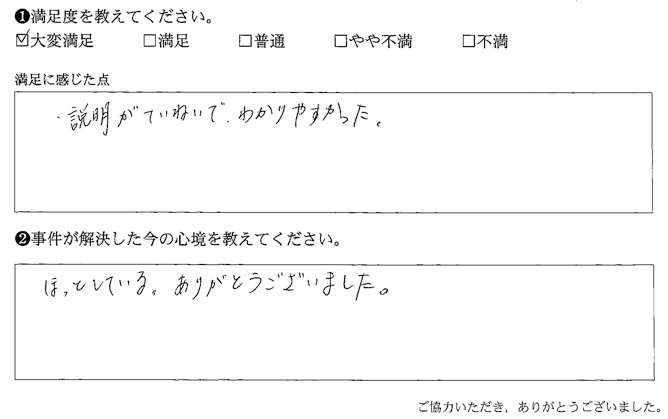 ❶満足度を教えてください。
☑大変満足 □満足 □普通 □やや不満 □不満
満足に感じた点
・説明がていねいで、わかりやすかった。
❷事件が解決した今の心境を教えてください。
ほっとしている。ありがとうございました。
ご協力いただき，ありがとうございました。